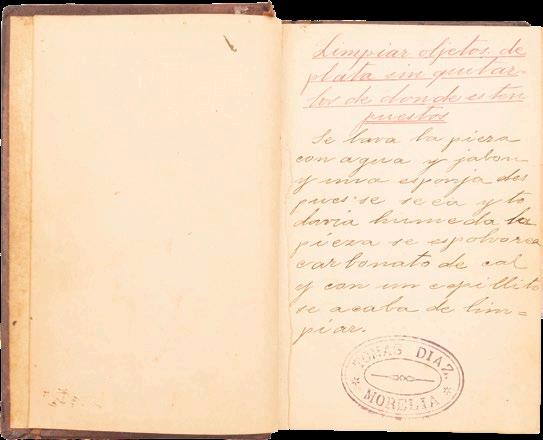 Limpiar objetos de
plata sin quitar-
los de donde esten
puestos
Se lava la pieza
con agua y jabon
y una esponja des
pues se seca y to
davia humeda la
pieza se espolvorea
carbonato de cal
y con un cepillito
se acaba de lim=
piar.
TOMAS DIAZ.
* *
MORELIA